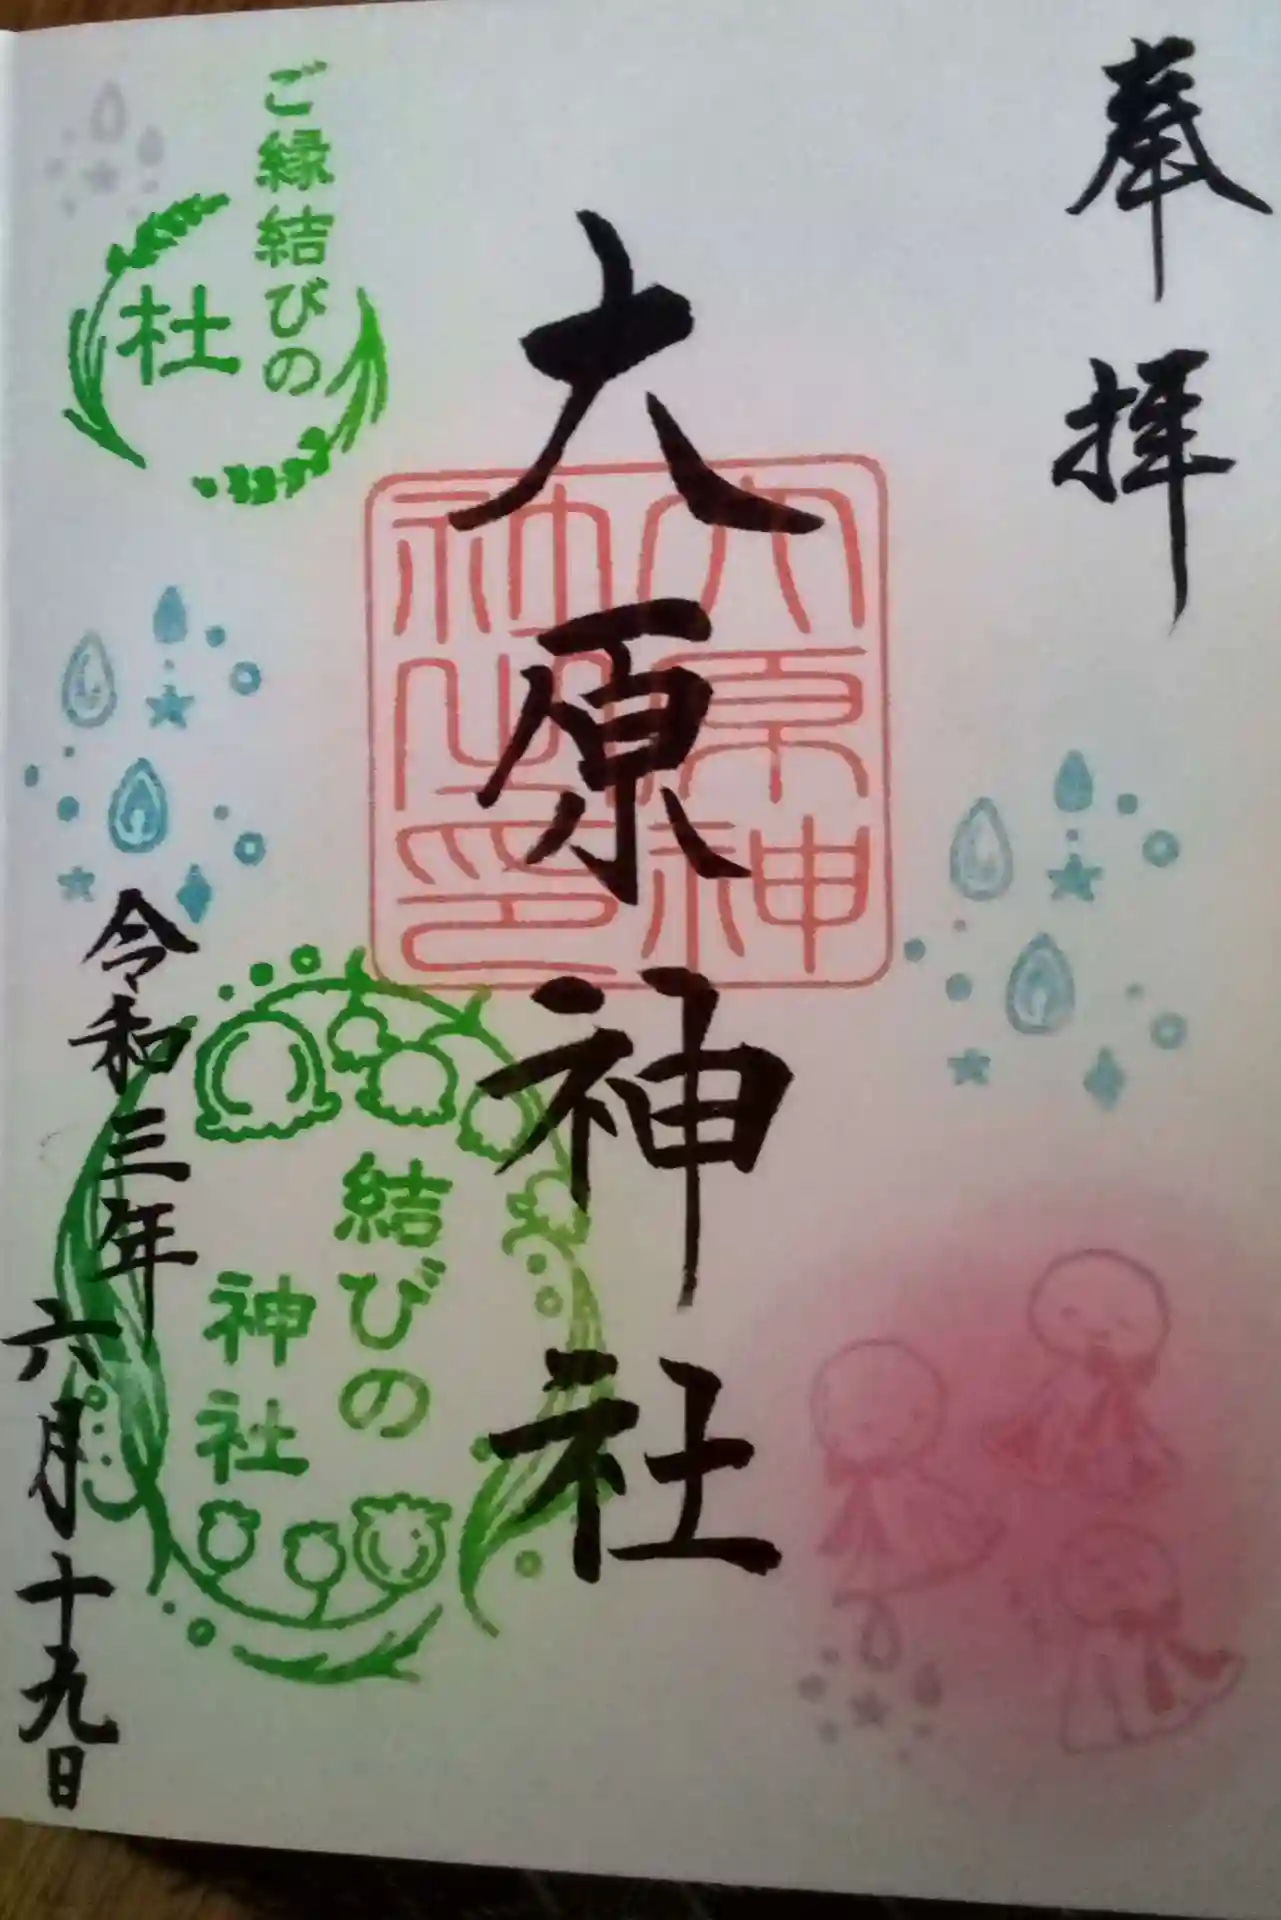 奉拝
大原神社
大原神社之印
ご縁結びの
杜
結びの
神社
令和三年
六月十九日